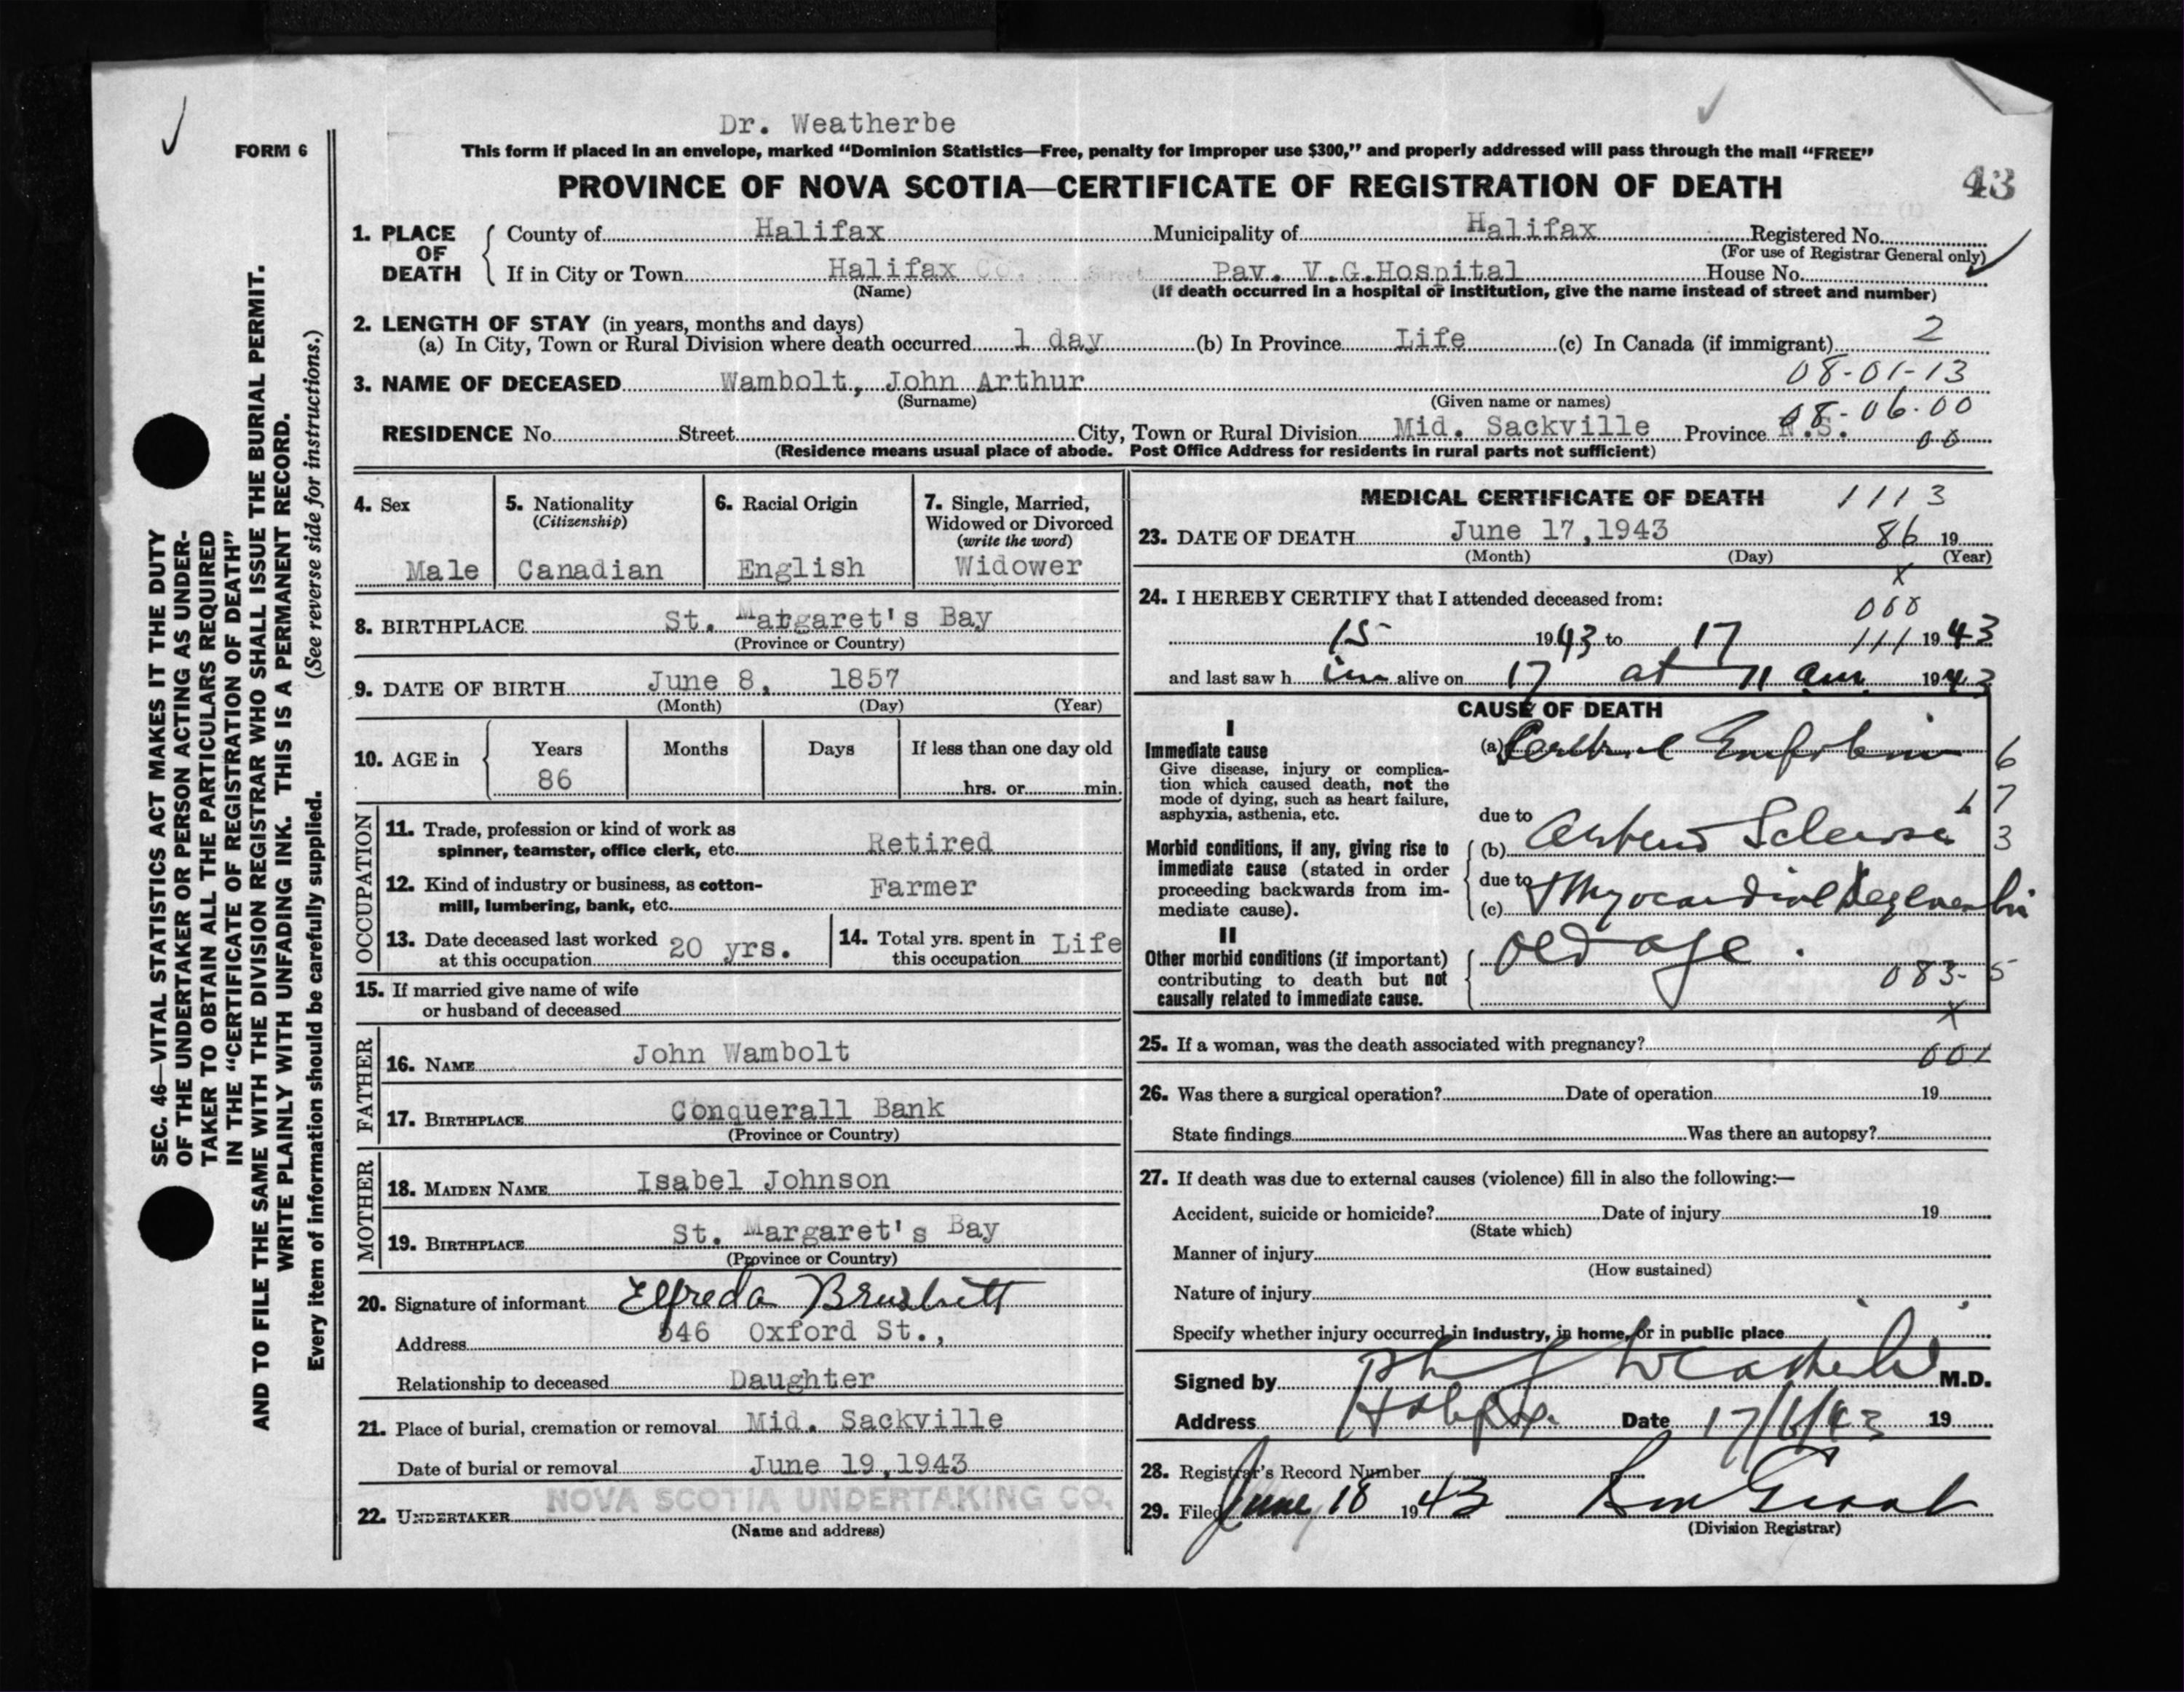 Dr. Weatherbe
FORM 6
This form if placed in an envelope, marked “Dominion Statistics—Free, penalty for improper use $300,” and properly addressed will pass through the mail “FREE”
PROVINCE OF NOVA SCOTIA—CERTIFICATE OF REGISTRATION OF DEATH
43
1. PLACE OF DEATH
County of Halifax Municipality of Halifax Registered No.
(For use of Registrar General only)
If in City or Town Halifax Co. Pav. V.G.Hospital House No.
(Name) (If death occurred in a hospital or institution, give the name instead of street and number)
2. LENGTH OF STAY (in years, months and days)
(a) In City, Town or Rural Division where death occurred 1 day (b) In Province Life (c) In Canada (if immigrant) 2
3. NAME OF DECEASED Wambolt, John Arthur 08-01-13
(Surname) (Given name or names)
08-06-00
RESIDENCE No. Street City, Town or Rural Division Mid. Sackville Province N.S. 00
(Residence means usual place of abode. Post Office Address for residents in rural parts not sufficient)
4. Sex
Male
5. Nationality
(Citizenship)
Canadian
6. Racial Origin
English
7. Single, Married,
Widowed or Divorced
(write the word)
Widower
8. BIRTHPLACE St. Margaret's Bay
(Province or Country)
9. DATE OF BIRTH June 8, 1857
(Month) (Day) (Year)
10. AGE in
Years Months Days If less than one day old
86 hrs. or min.
OCCUPATION
11. Trade, profession or kind of work as
spinner, teamster, office clerk, etc. Retired
12. Kind of industry or business, as cotton-
mill, lumbering, bank, etc. Farmer
13. Date deceased last worked
at this occupation 20 yrs.
14. Total yrs. spent in
this occupation Life
15. If married give name of wife
or husband of deceased
FATHER
16. NAME John Wambolt
17. BIRTHPLACE Conquerall Bank
(Province or Country)
MOTHER
18. MAIDEN NAME Isabel Johnson
19. BIRTHPLACE St. Margaret's Bay
(Province or Country)
20. Signature of informant Elfreda
Address 546 Oxford St.,
Relationship to deceased Daughter
21. Place of burial, cremation or removal Mid. Sackville
Date of burial or removal June 19,1943
22. UNDERTAKER NOVA SCOTIA UNDERTAKING CO.
(Name and address)
MEDICAL CERTIFICATE OF DEATH 1113
23. DATE OF DEATH June 17,1943 86 19
(Month) (Day) (Year)
x
24. I HEREBY CERTIFY that I attended deceased from:
000
15 1943 to 17 111 1943
and last saw h im alive on 17 at 11 am. 1943
CAUSE OF DEATH
I
Immediate cause
Give disease, injury or complica-
tion which caused death, not the
mode of dying, such as heart failure,
asphyxia, asthenia, etc.
(a) Cerebral Embolism 6
due to 7
Morbid conditions, if any, giving rise to
immediate cause (stated in order
proceeding backwards from im-
mediate cause).
(b) Arterio Sclerosis 3
due to
(c) Myocardial Degeneration
II
Other morbid conditions (if important)
contributing to death but not
causally related to immediate cause.
Old age.
083- 5
x
25. If a woman, was the death associated with pregnancy?
001
26. Was there a surgical operation? Date of operation 19
State findings Was there an autopsy?
27. If death was due to external causes (violence) fill in also the following:—
Accident, suicide or homicide? Date of injury 19
(State which)
Manner of injury
(How sustained)
Nature of injury
Specify whether injury occurred in industry, in home, or in public place
Signed by Weatherbe M.D.
Address Halifax. Date 17/6/43 19
28. Registrar's Record Number
29. Filed June 18 1943
(Division Registrar)
SEC. 46—VITAL STATISTICS ACT MAKES IT THE DUTY
OF THE UNDERTAKER OR PERSON ACTING AS UNDER-
TAKER TO OBTAIN ALL THE PARTICULARS REQUIRED
IN THE “CERTIFICATE OF REGISTRATION OF DEATH”
AND TO FILE THE SAME WITH THE DIVISION REGISTRAR WHO SHALL ISSUE THE BURIAL PERMIT.
WRITE PLAINLY WITH UNFADING INK. THIS IS A PERMANENT RECORD.
Every item of information should be carefully supplied. (See reverse side for instructions.)